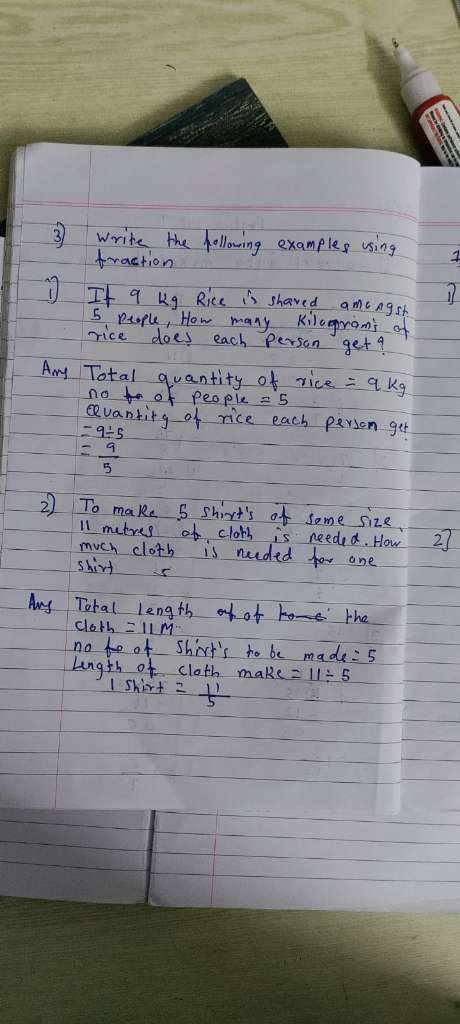 3) Write the following examples using
fraction
1) If 9 kg Rice is shared amongst
5 people, How many Kilograms of
rice does each person get?
Ans Total quantity of rice = 9 kg
no of people = 5
Quantity of rice each person get
= 9÷5
= 9
5
2) To make 5 shirt's of same size
11 metres of cloth is needed. How
much cloth is needed for one
shirt
Ans Total length of the
cloth = 11 M
no of shirt's to be made = 5
Length of cloth make = 11÷5
1 shirt = 11
5
1)
2)